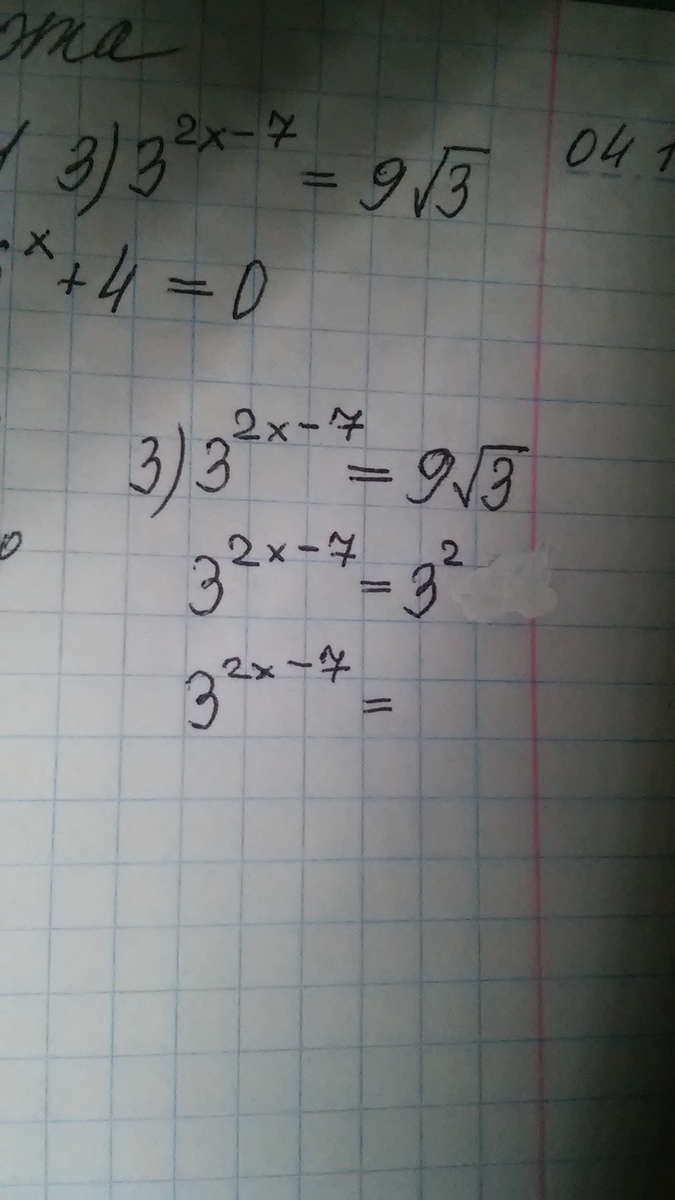 3) 3^{2x-7} = 9√3
x + 4 = 0
3) 3^{2x-7} = 9√3
3^{2x-7} = 3^2
3^{2x-7} =